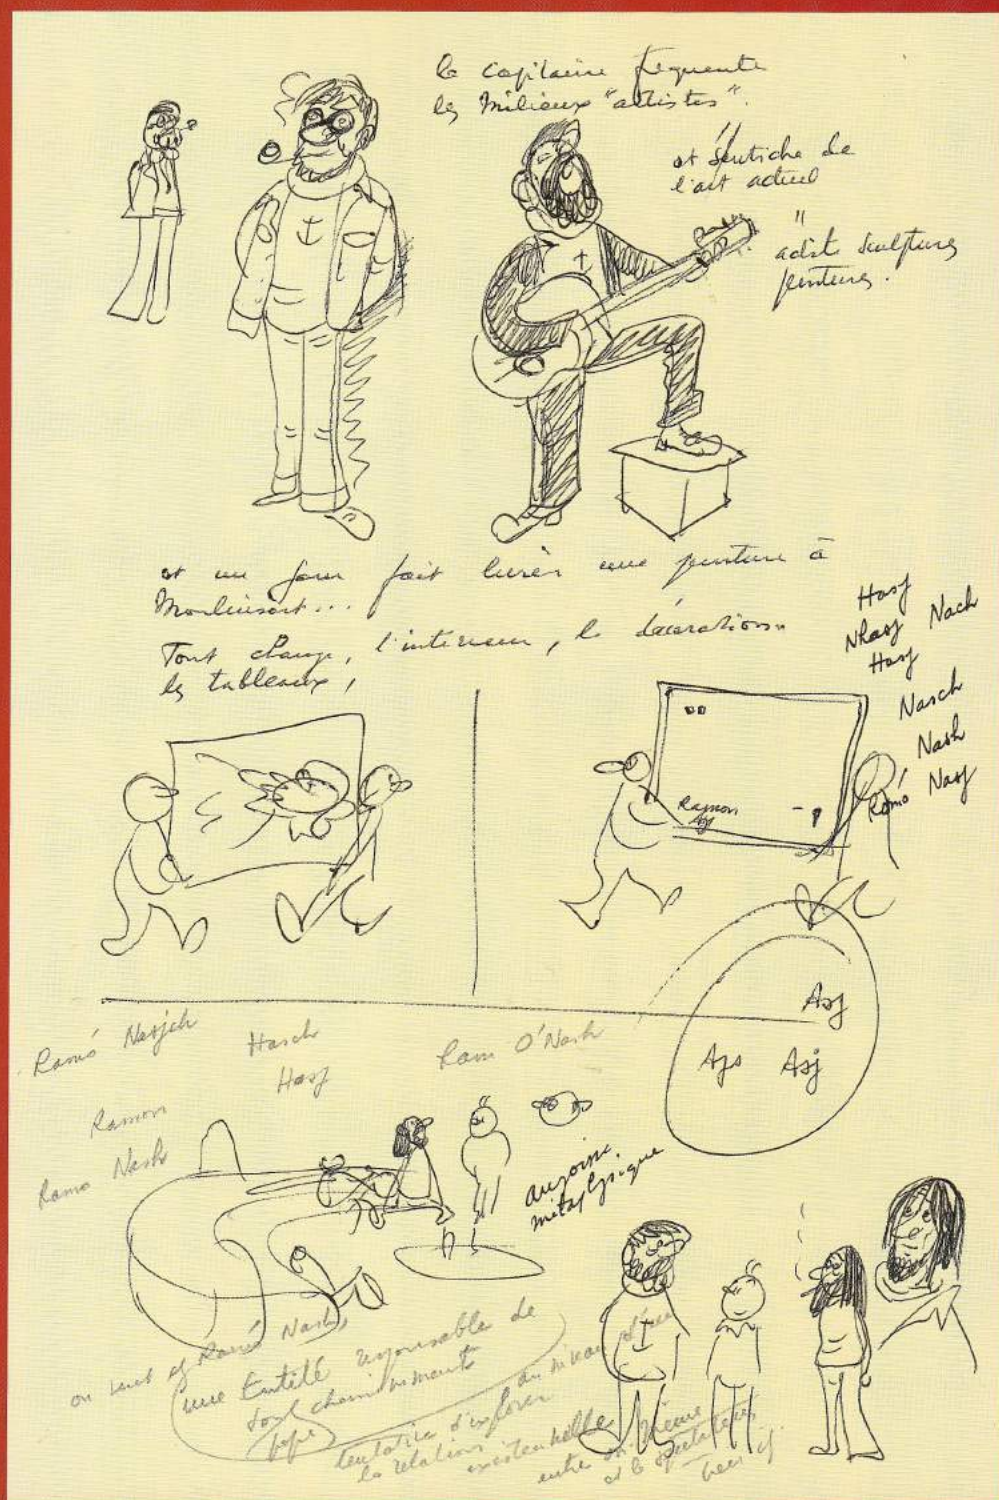 le capitaine fréquente
les milieux "artistes".
et s'entiche de
l'art actuel
"
achète sculptures
peintures.
et un jour fait livrer une peinture à
Moulinsart...
Tout change, l'intérieur, la décoration
les tableaux,
Hasj
Nhasj Nach
Hasj
Nasch
Nash
Ramó Nasj
Ramon
Asj
Asj
Ajs Asj
Ramó Nasjch
Hasch
Hasj
Ram O'Nash
Ramon
Nash
Ramo
angoisse
métaphysique
on veut Ramó Nash,
une Entité responsable de
tout cheminement
pope
tentative d'explorer
la relation
existentielle
au niveau
entre
et le spectateur